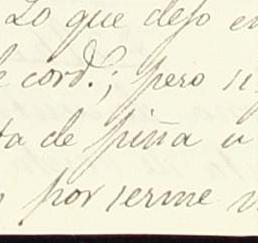 Lo que dejo en
cord.; pero si
ta de piña u
por serme